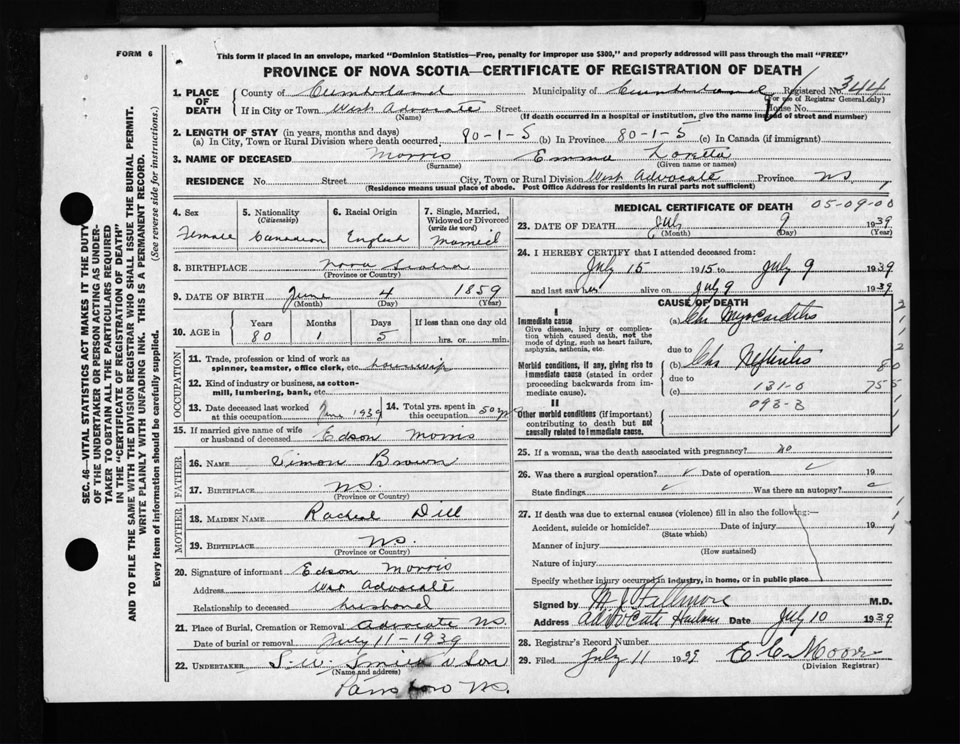 FORM 6
This form if placed in an envelope, marked "Dominion Statistics—Free, penalty for improper use $300," and properly addressed will pass through the mail "FREE"
PROVINCE OF NOVA SCOTIA—CERTIFICATE OF REGISTRATION OF DEATH
SEC. 46—VITAL STATISTICS ACT MAKES IT THE DUTY
OF THE UNDERTAKER OR PERSON ACTING AS UNDER-
TAKER TO OBTAIN ALL THE PARTICULARS REQUIRED
IN THE "CERTIFICATE OF REGISTRATION OF DEATH"
AND TO FILE THE SAME WITH THE DIVISION REGISTRAR WHO SHALL ISSUE THE BURIAL PERMIT.
WRITE PLAINLY WITH UNFADING INK. THIS IS A PERMANENT RECORD.
Every item of information should be carefully supplied. (See reverse side for instructions.)
1. PLACE OF DEATH County of Cumberland Municipality of Cumberland Registered No. 344
(For use of Registrar General only)
If in City or Town West Advocate Street House No.
(Name) (If death occurred in a hospital or institution, give the name instead of street and number)
2. LENGTH OF STAY (in years, months and days)
(a) In City, Town or Rural Division where death occurred 80-1-5 (b) In Province 80-1-5 (c) In Canada (if immigrant)
3. NAME OF DECEASED Morris Emma Loretta
(Surname) (Given name or names)
RESIDENCE No. Street City, Town or Rural Division West Advocate Province NS
(Residence means usual place of abode. Post Office Address for residents in rural parts not sufficient)
4. Sex Female
5. Nationality (Citizenship) Canadian
6. Racial Origin English
7. Single, Married, Widowed or Divorced (write the word) Married
8. BIRTHPLACE Nova Scotia
(Province or Country)
9. DATE OF BIRTH June 4 1859
(Month) (Day) (Year)
10. AGE in Years 80 Months 1 Days 5 If less than one day old hrs. or min.
OCCUPATION
11. Trade, profession or kind of work as spinner, teamster, office clerk, etc. housewife
12. Kind of industry or business, as cotton-mill, lumbering, bank, etc.
13. Date deceased last worked at this occupation June 1939
14. Total yrs. spent in this occupation 50 yrs
15. If married give name of wife or husband of deceased Edson Morris
FATHER
16. NAME Simon Brown
17. BIRTHPLACE NS.
(Province or Country)
MOTHER
18. MAIDEN NAME Racheal Dill
19. BIRTHPLACE NS.
(Province or Country)
20. Signature of informant Edson Morris
Address West Advocate
Relationship to deceased husband
21. Place of Burial, Cremation or Removal Advocate NS.
Date of burial or removal July 11-1939
22. UNDERTAKER S.W. Smith & Son
(Name and address)
Parrsboro NS.
MEDICAL CERTIFICATE OF DEATH 05-09-00
23. DATE OF DEATH July 9 1939
(Month) (Day) (Year)
24. I HEREBY CERTIFY that I attended deceased from:
July 15 1915 to July 9 1939
and last saw her alive on July 9 1939
CAUSE OF DEATH
I
Immediate cause
Give disease, injury or complication which caused death, not the mode of dying, such as heart failure, asphyxia, asthenia, etc.
(a) Chr Myocarditis
due to
Morbid conditions, if any, giving rise to immediate cause (stated in order proceeding backwards from immediate cause).
(b) Chr Nephritis
due to
(c) 131-0
II
Other morbid conditions (if important) contributing to death but not causally related to immediate cause.
093-B
25. If a woman, was the death associated with pregnancy? no
26. Was there a surgical operation? Date of operation 19
State findings Was there an autopsy?
27. If death was due to external causes (violence) fill in also the following:—
Accident, suicide or homicide? Date of injury 19
(State which)
Manner of injury
(How sustained)
Nature of injury
Specify whether injury occurred in industry, in home, or in public place
Signed by M J Fillmore M.D.
Address Advocate Harbour Date July 10 1939
28. Registrar's Record Number
29. Filed July 11 1939 E C Moore
(Division Registrar)